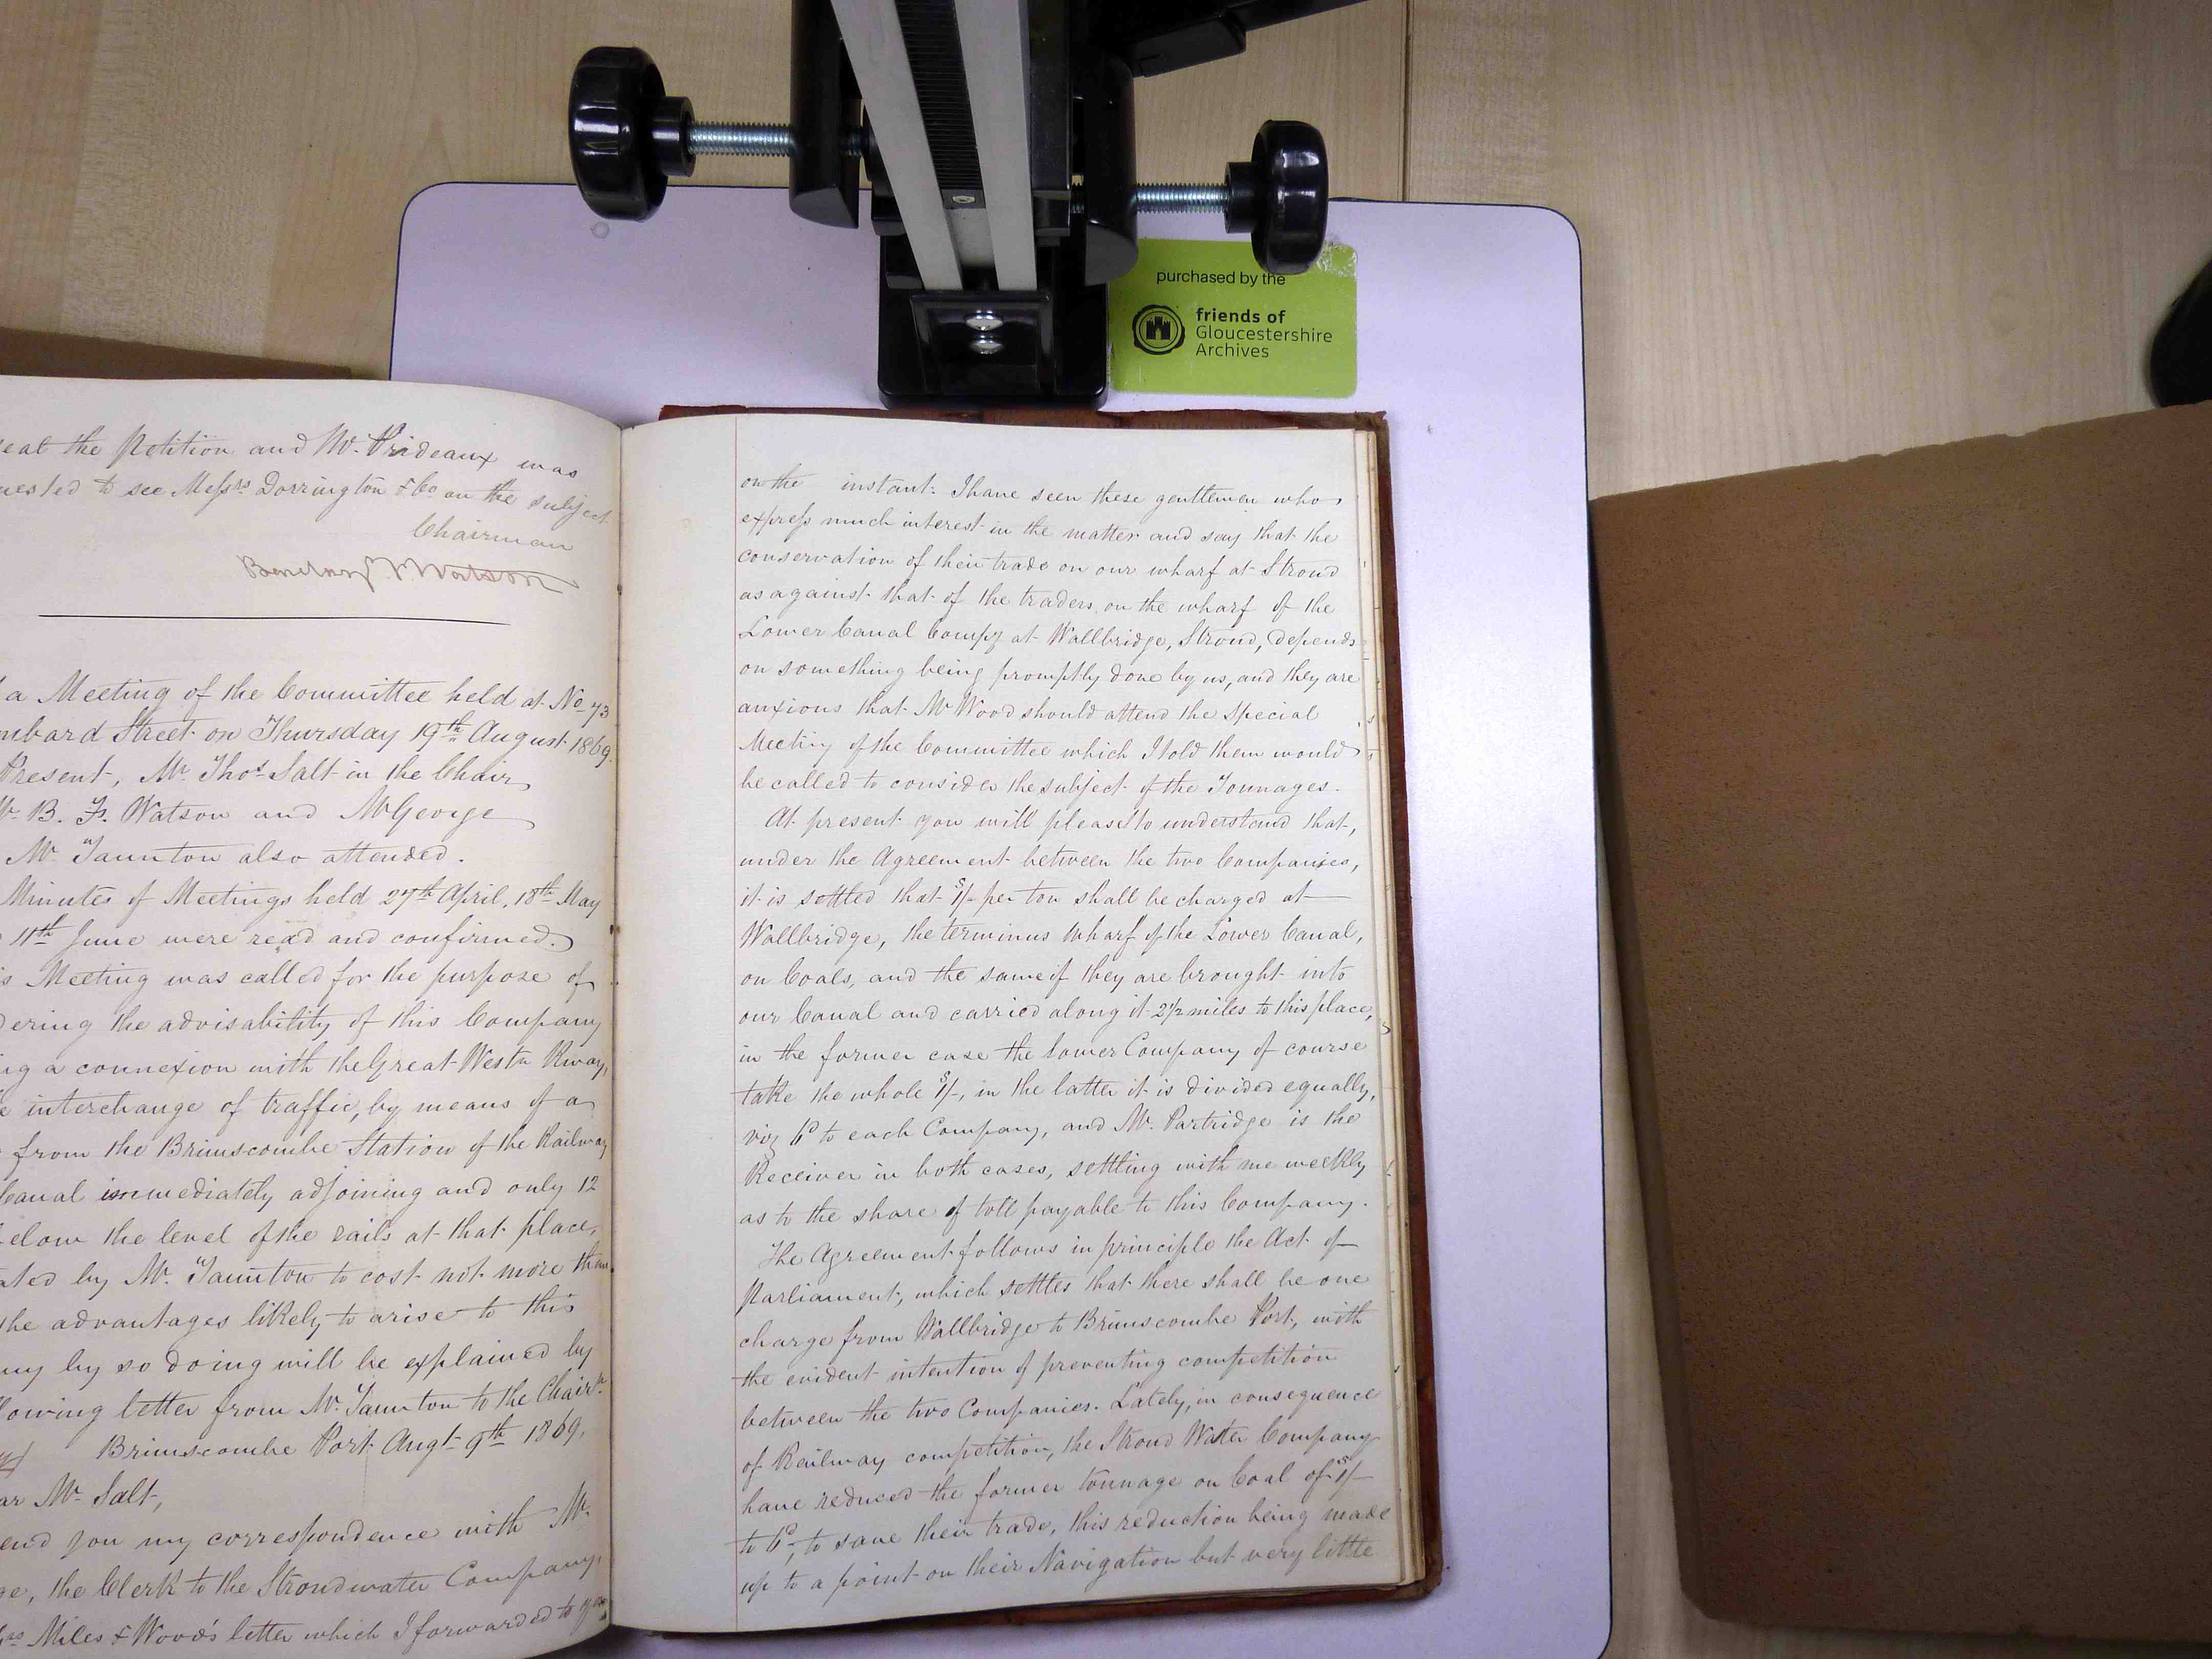 purchased by the
friends of
Gloucestershire
Archives
eat the Petition and Mr. Prideaux was
uested to see Messrs Dorrington & Co on the subject
Chairman
Watson
a Meeting of the Committee held at No 73
mbard Street on Thursday 19th August 1869.
Present, Mr. Thos. Salt in the Chair
Mr. B. F. Watson and Mr George
Mr. Taunton also attended.
Minutes of Meetings held 27th April, 18th May
11th June were read and confirmed.
s Meeting was called for the purpose of
dering the advisability of this Company
ng a connexion with the Great Westn Rway,
e interchange of traffic, by means of a
from the Brimscombe Station of the Railway
Canal immediately adjoining and only 12
elow the level of the rails at that place,
ated by Mr. Taunton to cost not more than
the advantages likely to arise to this
ny by so doing will be explained by
lowing letter from Mr. Taunton to the Chairn.
Brimscombe Port Augt. 9th 1869.
ar Mr. Salt,
end you my correspondence with Mr.
ge, the Clerk to the Stroudwater Company,
Miles & Wood's letter which I forwarded to you
on the instant. I have seen these gentlemen who
express much interest in the matter and say that the
conservation of their trade on our wharf at Stroud
as against that of the traders on the wharf of the
Lower Canal Compy at Wallbridge, Stroud, depends
on something being promptly done by us, and they are
anxious that Mr Wood should attend the Special
Meeting of the Committee which I told them would
be called to consider the subject of the Tonnages.
At present you will please to understand that,
under the Agreement between the two Companies,
it is settled that 1s/- per ton shall be charged at
Wallbridge, the terminus wharf of the Lower Canal,
on Coals, and the same if they are brought into
our Canal and carried along it 2½ miles to this place,
in the former case the lower Company of course
take the whole 1s/-, in the latter it is divided equally,
viz 6d to each Company, and Mr. Partridge is the
Receiver in both cases, settling with me weekly
as to the share of toll payable to this Company.
The Agreement follows in principle the Act of
Parliament, which settles that there shall be one
charge from Wallbridge to Brimscombe Port, with
the evident intention of preventing competition
between the two Companies. Lately, in consequence
of Railway competition, the Stroud Water Company
have reduced the former tonnage on Coal of 1s/-
to 6d, to save their trade, this reduction being made
up to a point on their Navigation but very little